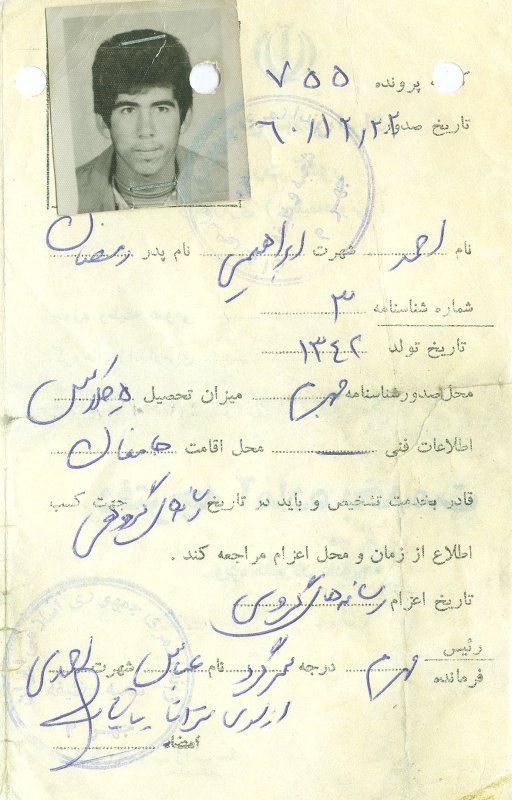 پرونده ۷۵۵
تاریخ صدور ۶۰/۱۲/۲۲
نام احمد شهرت ابراهیمی نام پدر رمضان
شماره شناسنامه ۳
تاریخ تولد ۱۳۴۲
محل صدور شناسنامه جهرم میزان تحصیل ۵ کلاس
اطلاعات فنی ـــ محل اقامت
قادر بخدمت تشخیص و باید در تاریخ رسانه‌های گروهی جهت کسب
اطلاع از زمان و محل اعزام مراجعه کند .
تاریخ اعزام رسانه‌های گروهی
رئیس
فرمانده جهرم درجه سرگرد نام عباس شهرت احمدی
از سوی
امضاء